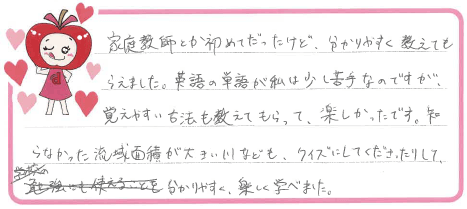 家庭教師とか初めてだったけど、分かりやすく教えても
らえました。英語の単語が私は少し苦手なのですが、
覚えやすい方法も教えてもらって、楽しかったです。知
らなかった流域面積が大きい川なども、クイズにしてくださったりして、
分かりやすく、楽しく学べました。